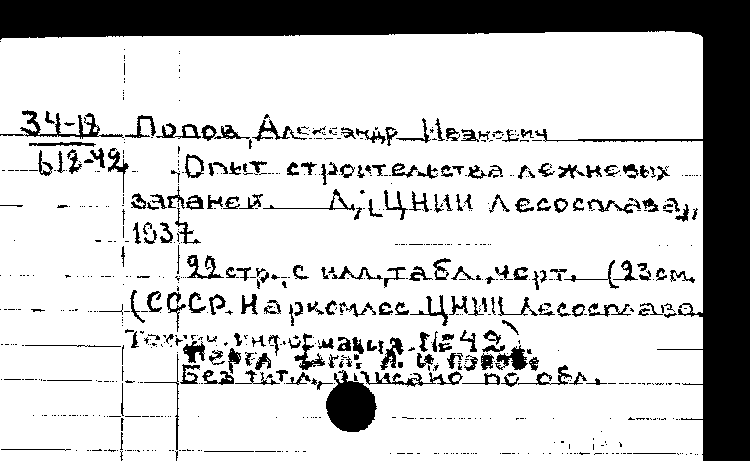 34-18 Попов, Александр Иванович
618-42 Опыт строительства лежневых
запаней. Л., [ЦНИИ Лесосплава],
1937.
22 стр., с илл., табл., черт. (23см.
(СССР. Наркомлес. ЦНИИ Лесосплава.
Технич. информация. № 42).
Перед загл: А. И. Попов.
Без тит.л., описано по обл.